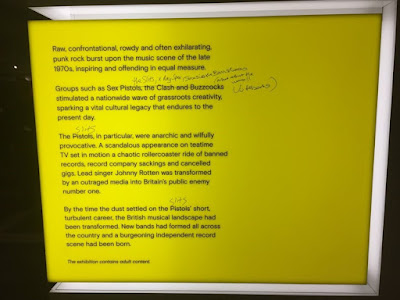 Raw, confrontational, rowdy and often exhilarating,
punk rock burst upon the music scene of the late
1970s, inspiring and offending in equal measure.
the Slits, X-Ray Spex, Siouxsie and the Banshees
(what about the
women!!)
Groups such as Sex Pistols, the Clash and Buzzcocks
stimulated a nationwide wave of grassroots creativity,
sparking a vital cultural legacy that endures to the
present day.
SLITS
The Pistols, in particular, were anarchic and wilfully
provocative. A scandalous appearance on teatime
TV set in motion a chaotic rollercoaster ride of banned
records, record company sackings and cancelled
gigs. Lead singer Johnny Rotten was transformed
by an outraged media into Britain's public enemy
number one.
SLITS
By the time the dust settled on the Pistols' short,
turbulent career, the British musical landscape had
been transformed. New bands had formed all across
the country and a burgeoning independent record
scene had been born.
The exhibition contains adult content.